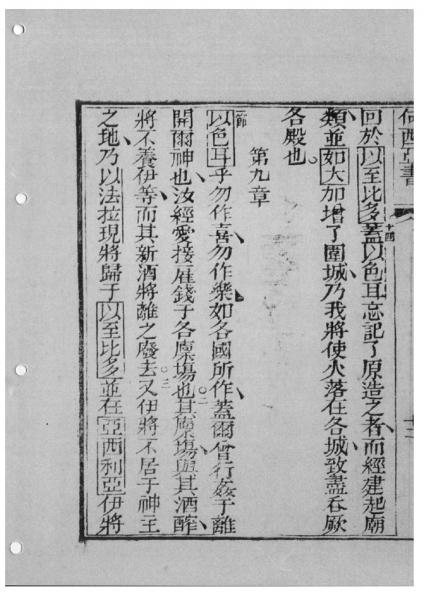 何西亞書
回於以至比多蓋以色耳忘記了原造之者而經建起廟
類並如大加增了圍城乃我將使火落在各城致盡吞厥
各殿也
第九章
以色耳乎勿作喜勿作樂如各國所作蓋爾曾行姦于離
開爾神也汝經愛接雇錢于各廩場也其廩場與其酒醡
將不養伊等而其新酒將離之廢去又伊將不居于神主
之地乃以法拉現將歸于以至比多並在亞西利亞伊將